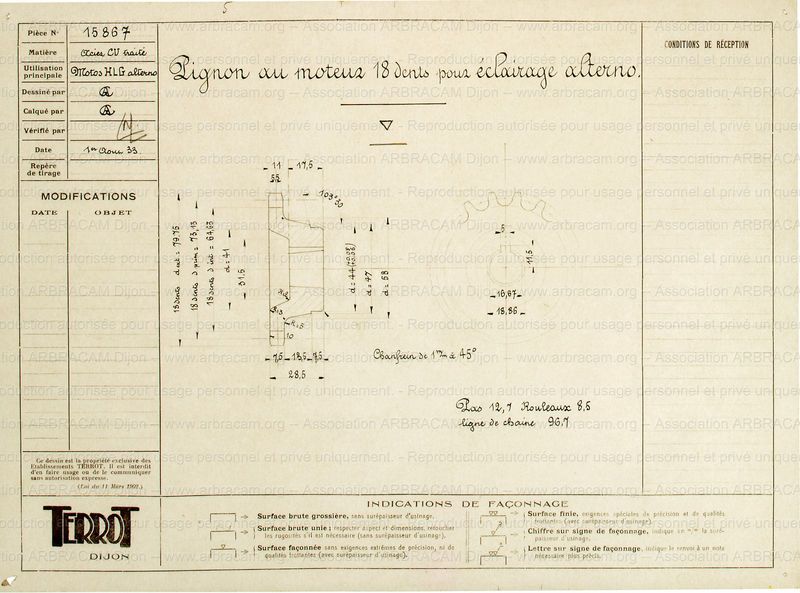 Pièce N° 15867
Matière Acier CV traité
Utilisation principale Motos HLG alterno
Dessiné par
Calqué par
Vérifié par
Date 1er Aout 33
Repère de tirage
MODIFICATIONS
DATE OBJET
Pignon au moteur 18 dents pour éclairage alterno.
CONDITIONS DE RÉCEPTION
11 17,5
103°30
18 dents d ext = 79,75
18 dents d prim = 73,13
18 dents d int = 64,63
d = 41
31,5
d = 47
d = 58
10
7,5 13,5 7,5
28,5
Chanfrein de 1 m/m à 45°
5
11,5
16,67
18,86
Pas 12,7 Rouleaux 8,5
ligne de chaine 96,7
Ce dessin est la propriété exclusive des
Etablissements TERROT. Il est interdit
d'en faire usage ou de le communiquer
sans autorisation expresse.
(Loi du 11 Mars 1902.)
TERROT
DIJON
INDICATIONS DE FAÇONNAGE
Surface brute grossière, sans surépaisseur d'usinage.
Surface brute unie ; respecter aspect et dimensions, retoucher
les rugosités s'il est nécessaire (sans surépaisseur d'usinage).
Surface façonnée sans exigences extrêmes de précision, ni de
qualités frottantes (avec surépaisseur d'usinage).
Surface finie, exigences spéciales de précision et de qualités
frottantes (avec surépaisseur d'usinage).
Chiffre sur signe de façonnage, indique en m/m la surépaisseur d'usinage.
Lettre sur signe de façonnage, indique le renvoi à un note
nécessaire plus précis.
www.arbracam.org – Association ARBRACAM Dijon – Reproduction autorisée pour usage personnel et privé uniquement.